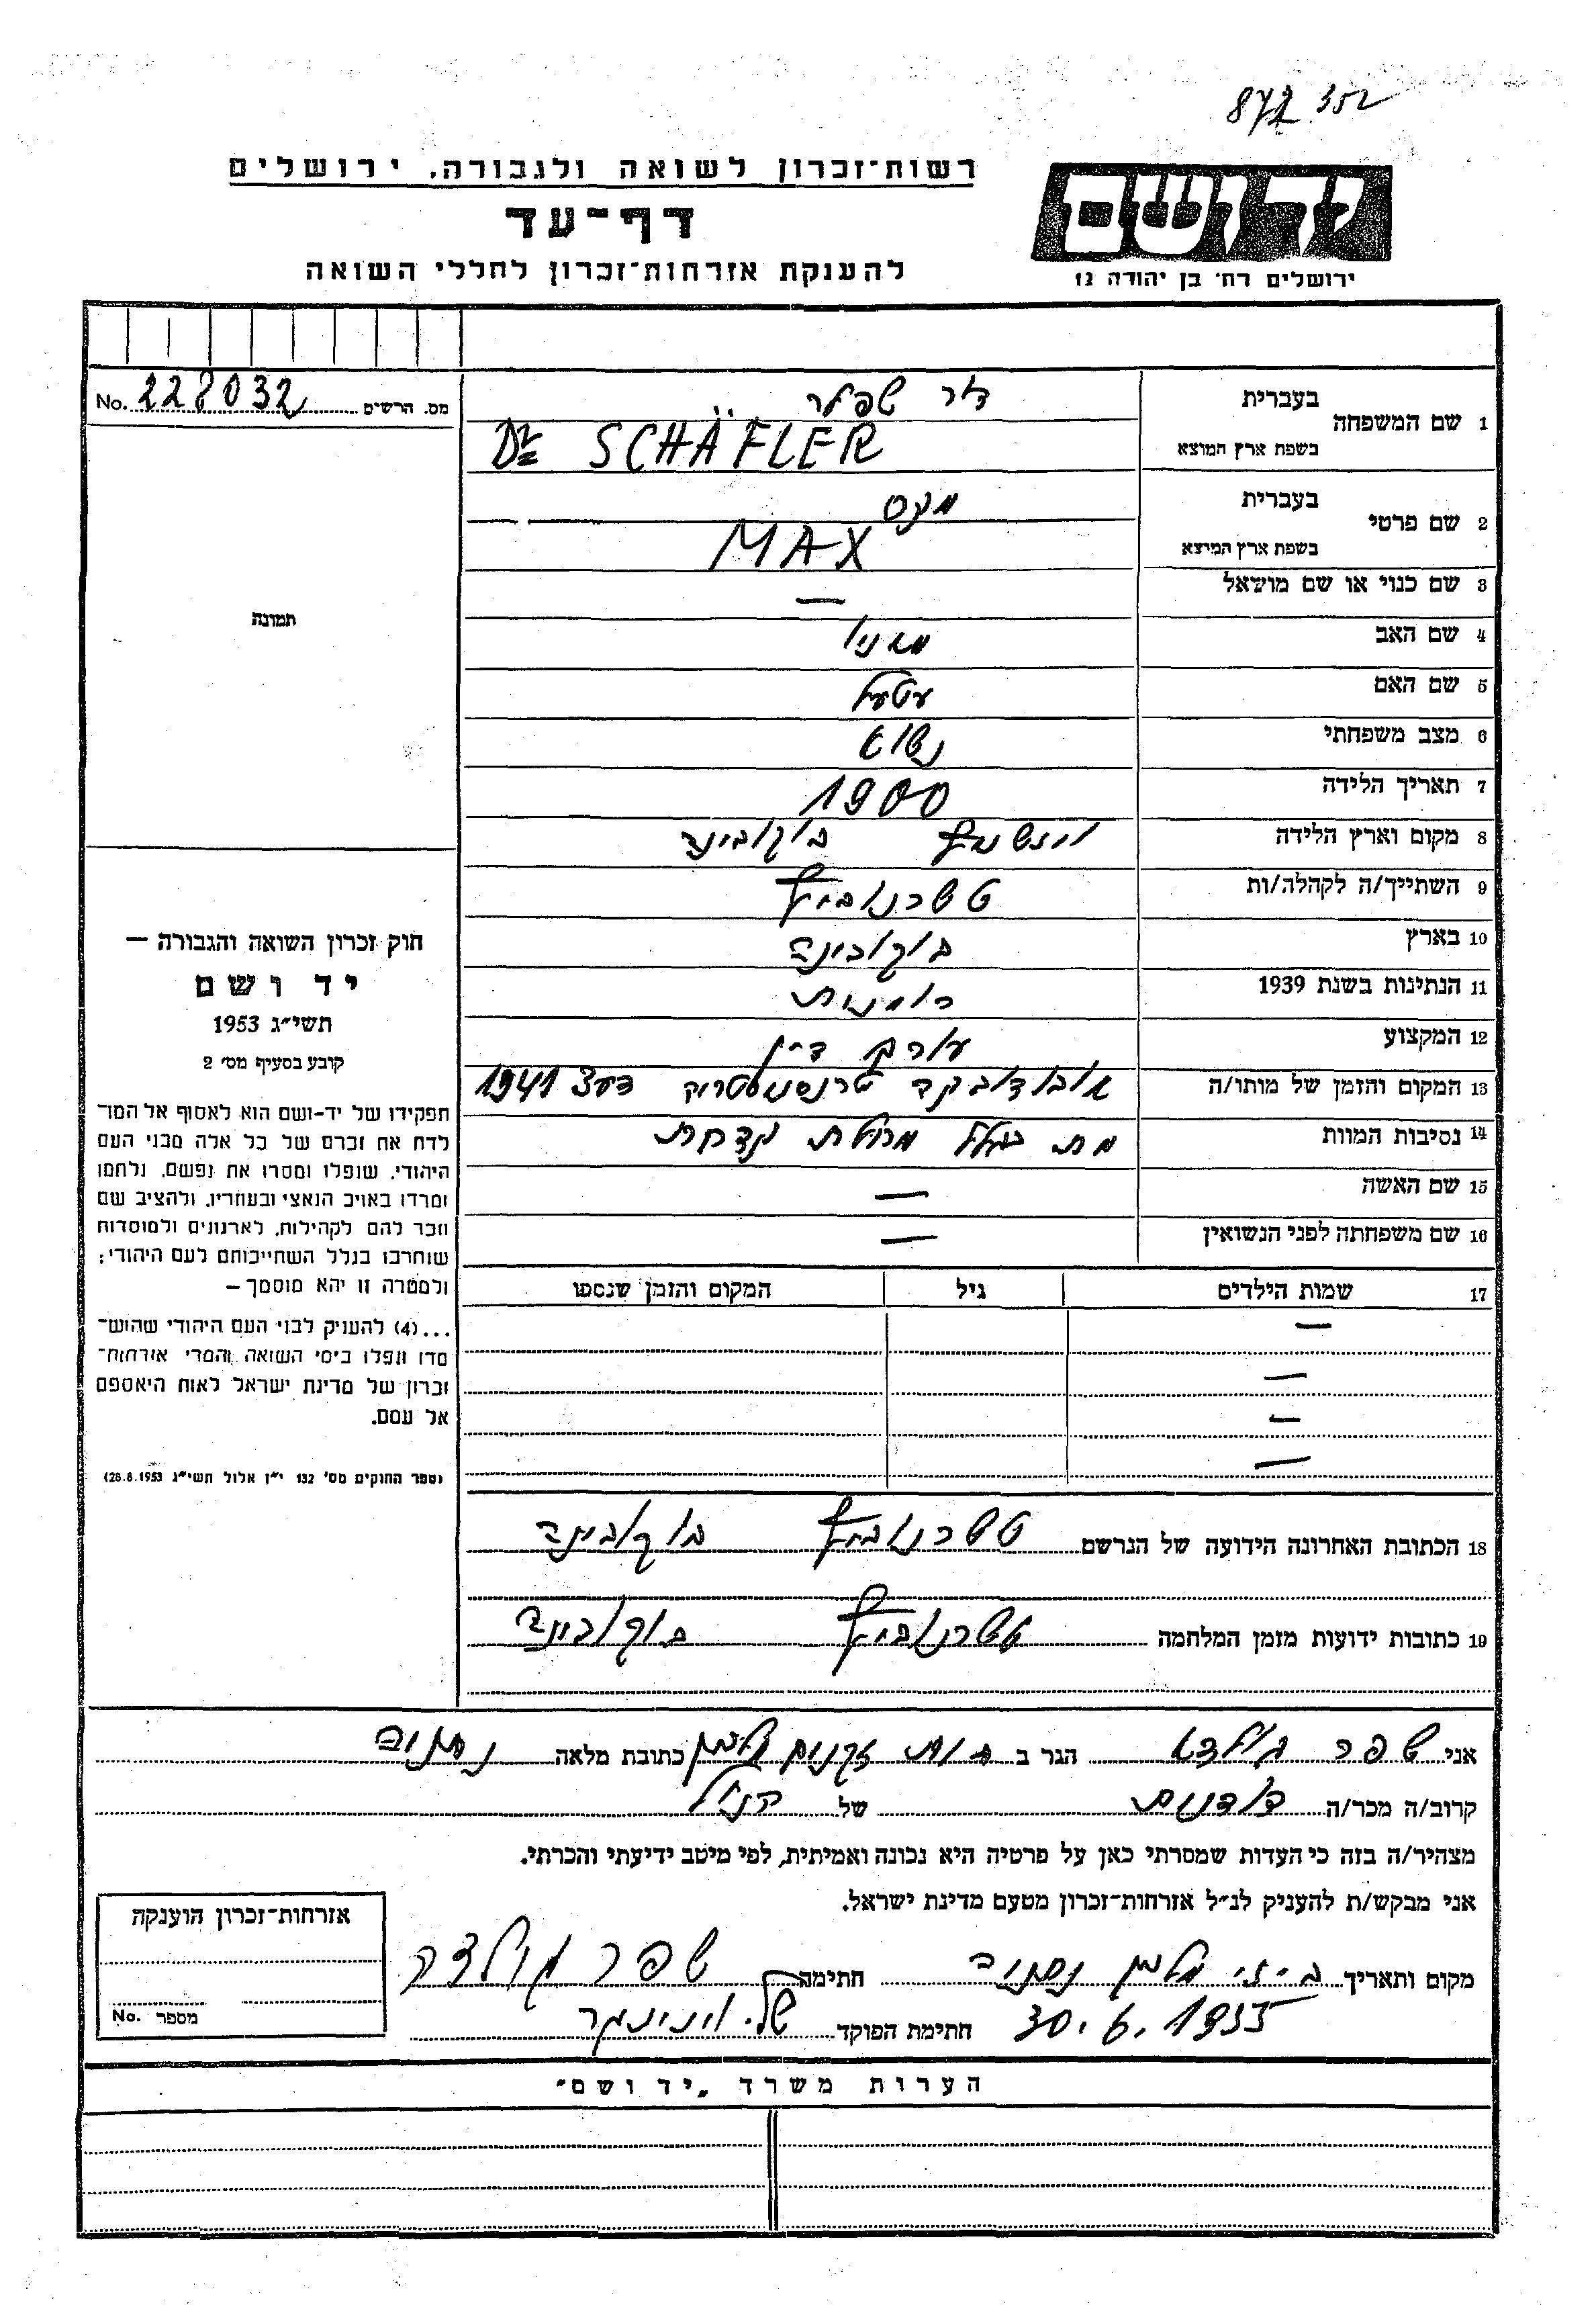 872 352
רשות־זכרון לשואה ולגבורה, ירושלים
דף־עד
להענקת אזרחות־זכרון לחללי השואה
יד ושם
ירושלים רח׳ בן יהודה 12
מס. הרשים No. 228032
1 שם המשפחה בעברית ד״ר שפלר
בשפת ארץ המוצא Dr SCHÄFLER
2 שם פרטי בעברית מקס
בשפת ארץ המוצא MAX
3 שם כנוי או שם מושאל —
4 שם האב מאניו
5 שם האם עטעל
6 מצב משפחתי נשוא
7 תאריך הלידה 1900
8 מקום וארץ הלידה בוקובינה
9 השתייך/ה לקהלה/ות טשרנוביץ
10 בארץ בוקובינה
11 הנתינות בשנת 1939 רומנית
12 המקצוע עורך דין
13 המקום והזמן של מותו/ה טרנסניסטריה דצמ 1941
14 נסיבות המוות מת בגלל מחלת קדחת
15 שם האשה —
16 שם משפחתה לפני הנשואין —
17 שמות הילדים גיל המקום והזמן שנספו
—
—
—
—
18 הכתובת האחרונה הידועה של הנרשם טשרנוביץ בוקובינה
19 כתובות ידועות מזמן המלחמה טשרנוביץ בוקובינה
תמונה
חוק זכרון השואה והגבורה —
יד ושם
תשי״ג 1953
קובע בסעיף מס׳ 2
תפקידו של יד-ושם הוא לאסוף אל המו־
לדת את זכרם של כל אלה מבני העם
היהודי, שנפלו ומסרו את נפשם, נלחמו
ומרדו באויב הנאצי ובעוזריו, ולהציב שם
וזכר להם לקהילות, לארגונים ולמוסדות
שנחרבו בגלל השתייכותם לעם היהודי;
ולמטרה זו יהא מוסמך —
...(4) להעניק לבני העם היהודי שהוש־
מדו ונפלו בימי השואה והמרי אזרחות־
זכרון של מדינת ישראל לאות היאספם
אל עמם.
(ספר החוקים מס׳ 132 י״ז אלול תשי״ג 28.8.1953)
אני שפר גולדא הגר ב בית זקנים מלבן כתובת מלאה נתניה
קרוב/ה מכר/ה בדודנות של הנ״ל
מצהיר/ה בזה כי העדות שמסרתי כאן על פרטיה היא נכונה ואמיתית, לפי מיטב ידיעתי והכרתי.
אני מבקש/ת להעניק לנ״ל אזרחות־זכרון מטעם מדינת ישראל.
מקום ותאריך מלבן נתניה חתימה שפר גולדה
30.6.1955 חתימת הפוקד
אזרחות־זכרון הוענקה
מספר No.
הערות משרד „יד ושם״